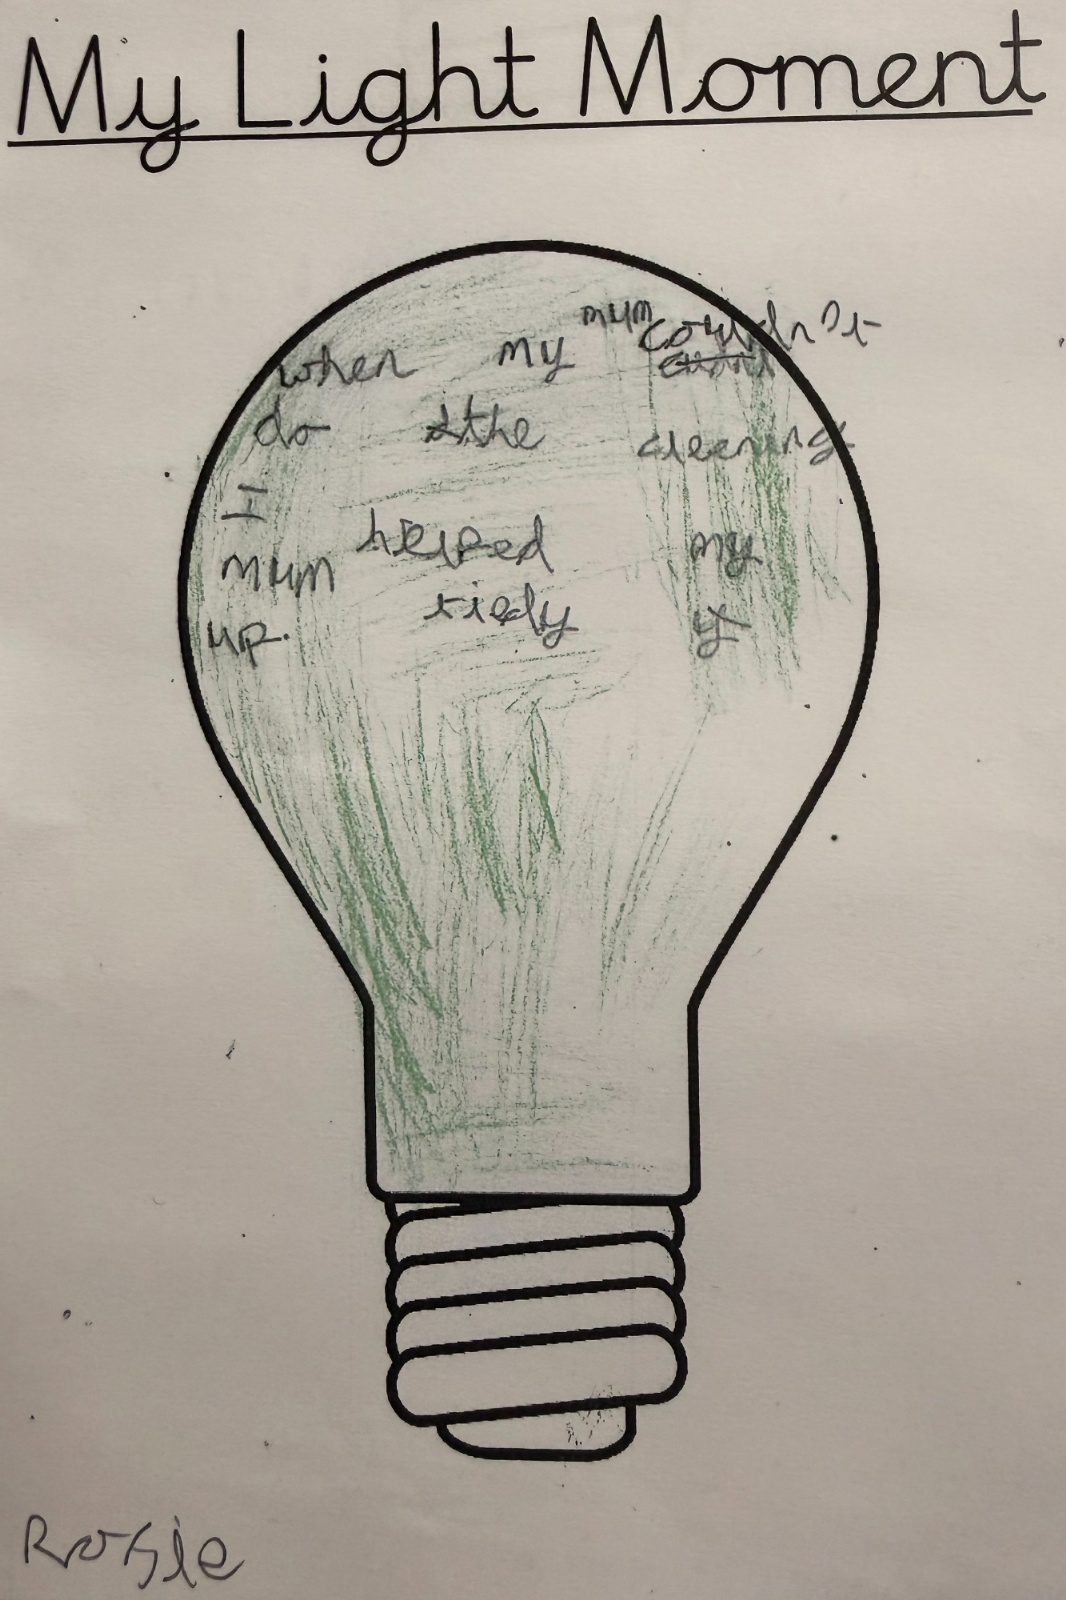 My Light Moment
when my mum couldn't
do the cleening
I helped my
mum tiedy
up.
Rosie